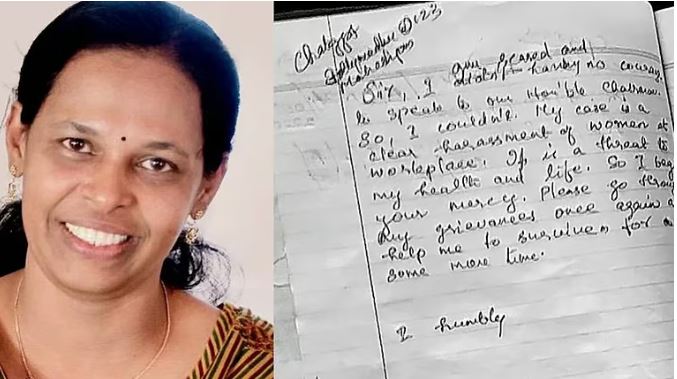 Sir, I am feared and
I don't having no courage
to speak to our Hon'ble Chairman.
So, I couldn't. My case is a
clear harassment of women at
workplace. It is a threat to
my health and life. So I beg
your mercy. Please go through
my grievances once again a
help me to survive for
some more time.
I humbly